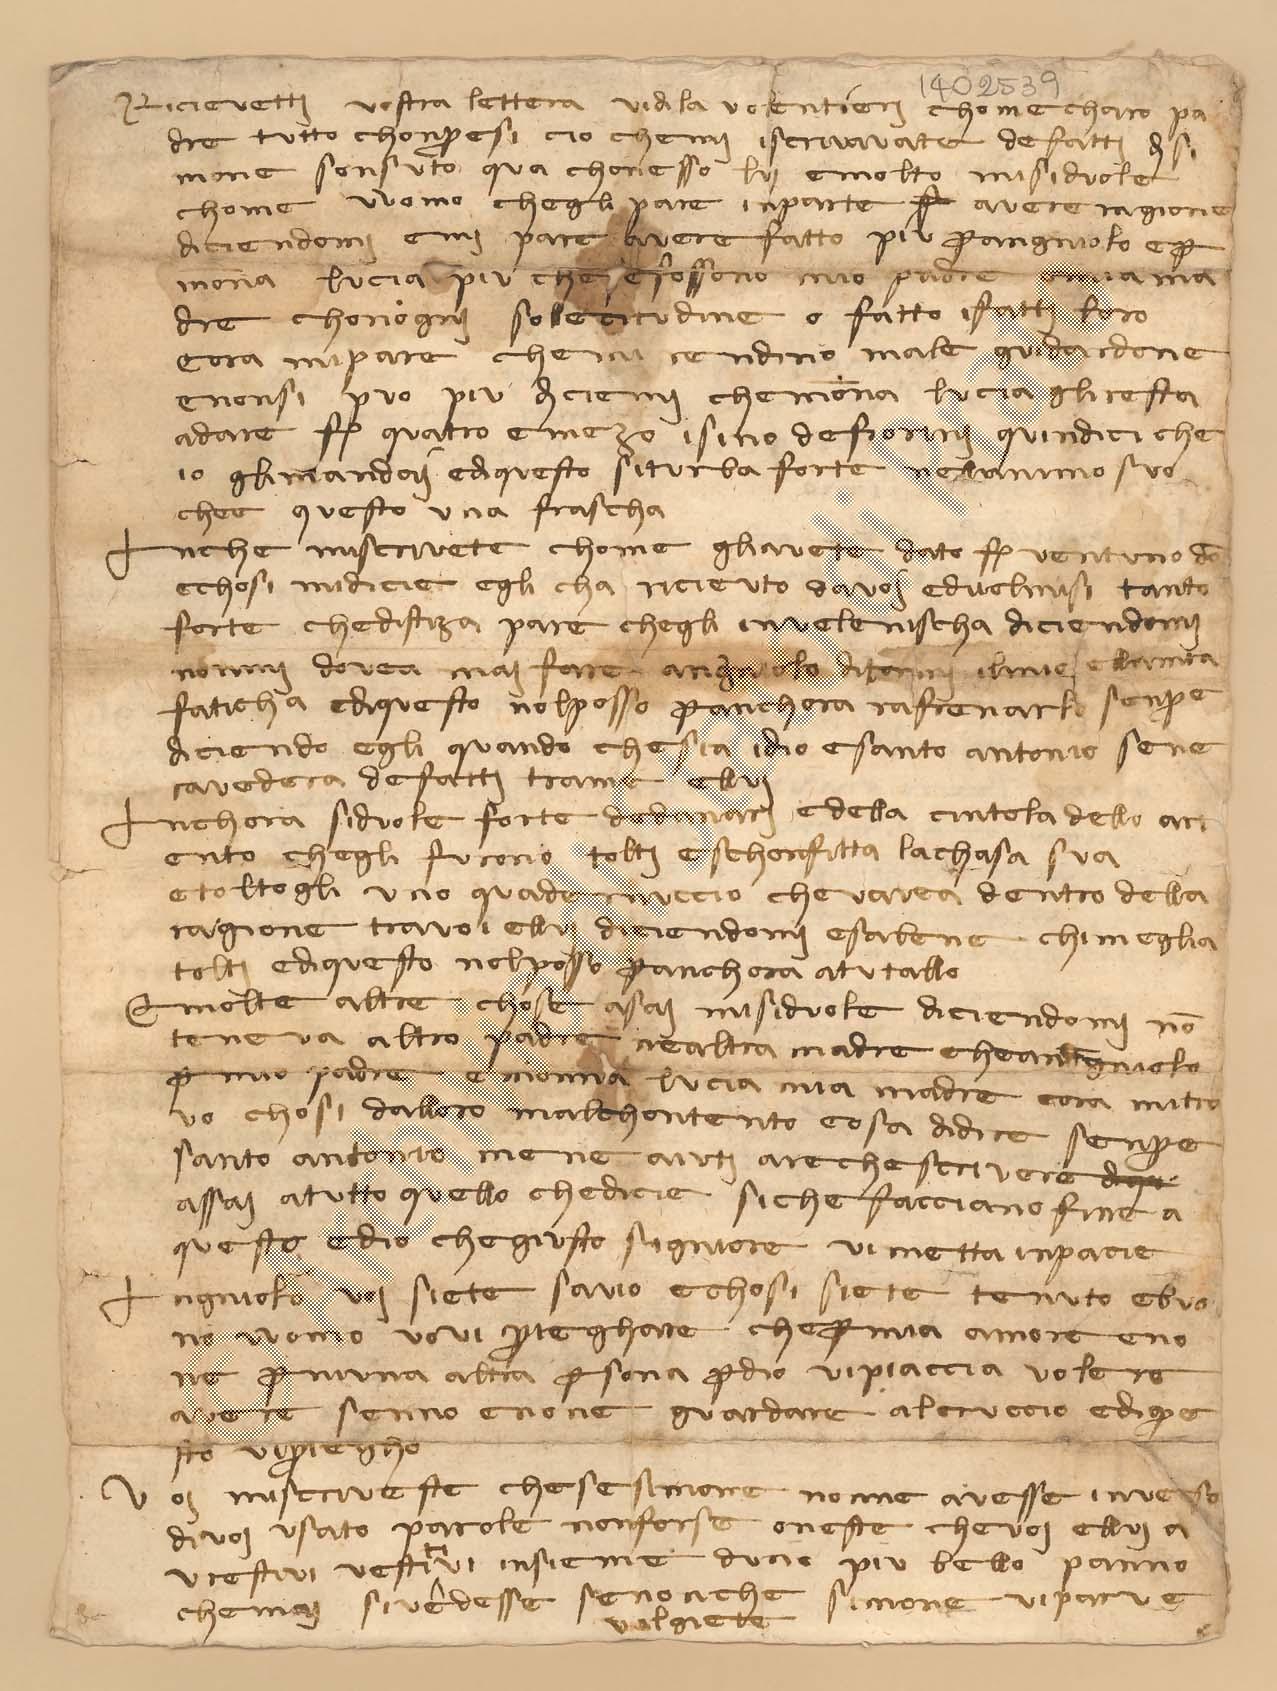 1402539
Ricievetti vostra lettera vidila volentieri chome charo pa
dre tutto chonpresi cio chemi iscrivavate de fatti di si
mone sonsuto qua chonesso lui emolto misiduole
chome uuomo chegli pare inparte avere ragione
diciendomi emi pare avere fatto piu per angniolo e per
mona lucia piu che sefossono mio padre mia ma
dre chonogni solecitudine o fatto ifatti loro
eora mipare chemi rendino male guidardone
enonsi puo piu diciemi chemona lucia gliresta
adare fl quatro emezo isino defiorini quindici che
io glimandoi edi questo siturba forte nellanimo suo
chee questo una frascha
Anche miscrivete chome gliavete dato fl ventuno doro
echosi midicie egli cha ricieuto davoi eduolmisi tanto
forte chedistiza pare chegli invelenischa diciendomi
nonmi dovea mai fare angniolo ditormi ilmio ellamia
faticha ediquesto nolposso peranchora rafrenarlo senpre
diciendo egli quando chesia idio esanto antonio sene
ravedera defatti trame ellui
Anchora siduole forte dedanari edella cintola dello ari
ento chegli furono tolti eschonfitta lachasa sua
etoltogli uno quadernuccio chevavea dentro della
ragione travoi ellui diciendomi esabene chimeglia
tolti ediquesto nolposso peranchora atutallo
E molte altre chose asai misiduole diciendomi non
teneva altro padre nealtra madre cheangniolo
per mio padre emonna lucia mia madre eora mitro
vo chosi dalloro malchontento eosa didire senpre
santo antonio mene aiuti areche scrivere
assai atutto quello chedicie siche facciano fine a
questo edio chegiusto signiore vimetta inpacie
Angniolo voi siete savio echosi siete tenuto ebuo
no uuomo vovi preghare cheper mia amore eno
ne per niuna altra persona perdio vipiaccia volere
avere senno enone guardare alcruccio edique
sto vipriegho
Voi miscriveste chesesimone nonne avesse inverso
divoi usato parole nonforse oneste chevoi ellui a
vrestivi vestitovi insieme ducio piu bello panno
chemai sivedesse senonche simone viparve
volgiete